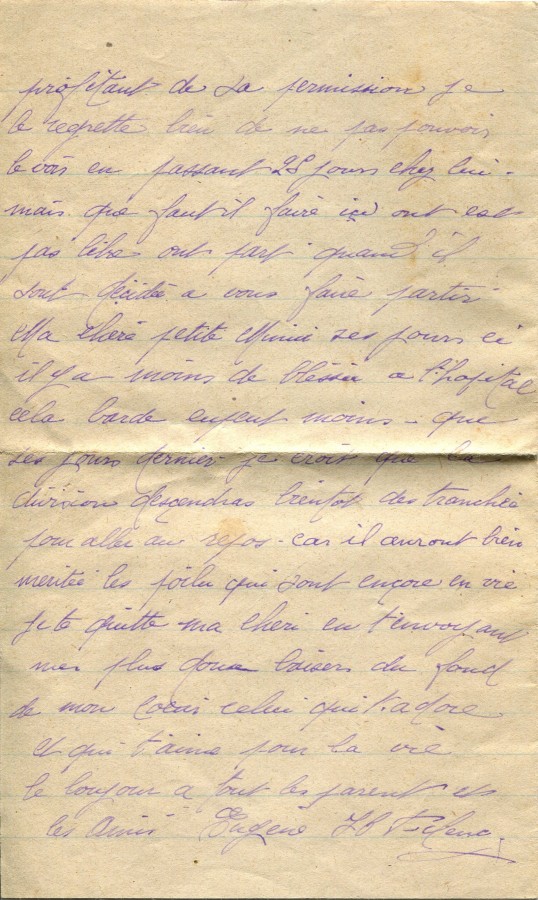 profitant de sa permission je
le regrette bien de ne pas pouvoir
le voir en passant 28 jours chez lui.
mais que faut il faire ici ont est
pas libre ont part quand il
sont décidé a vous faire partir
Ma cheré petite Mimi ses jours ci
il y a moins de blessée a l'hopital
cela barde moins que
ses jours dernier je croit que la
division descendras bientot des tranchée
pour aller au repos. car il auront bien
meritée les poilu qui sont encore en vie
je te quitte ma cheri en t'envoyant
mes plus doux baisers du fond
de mon cœur celui qui t'adore
et qui t'aime pour la vie
le bonjour a tout les parent et
les Amis Eugene